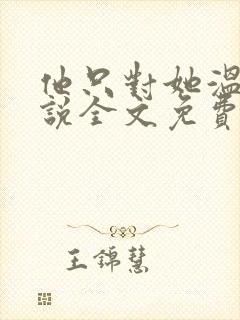 他只對她溫
說全文免費
王錦慧